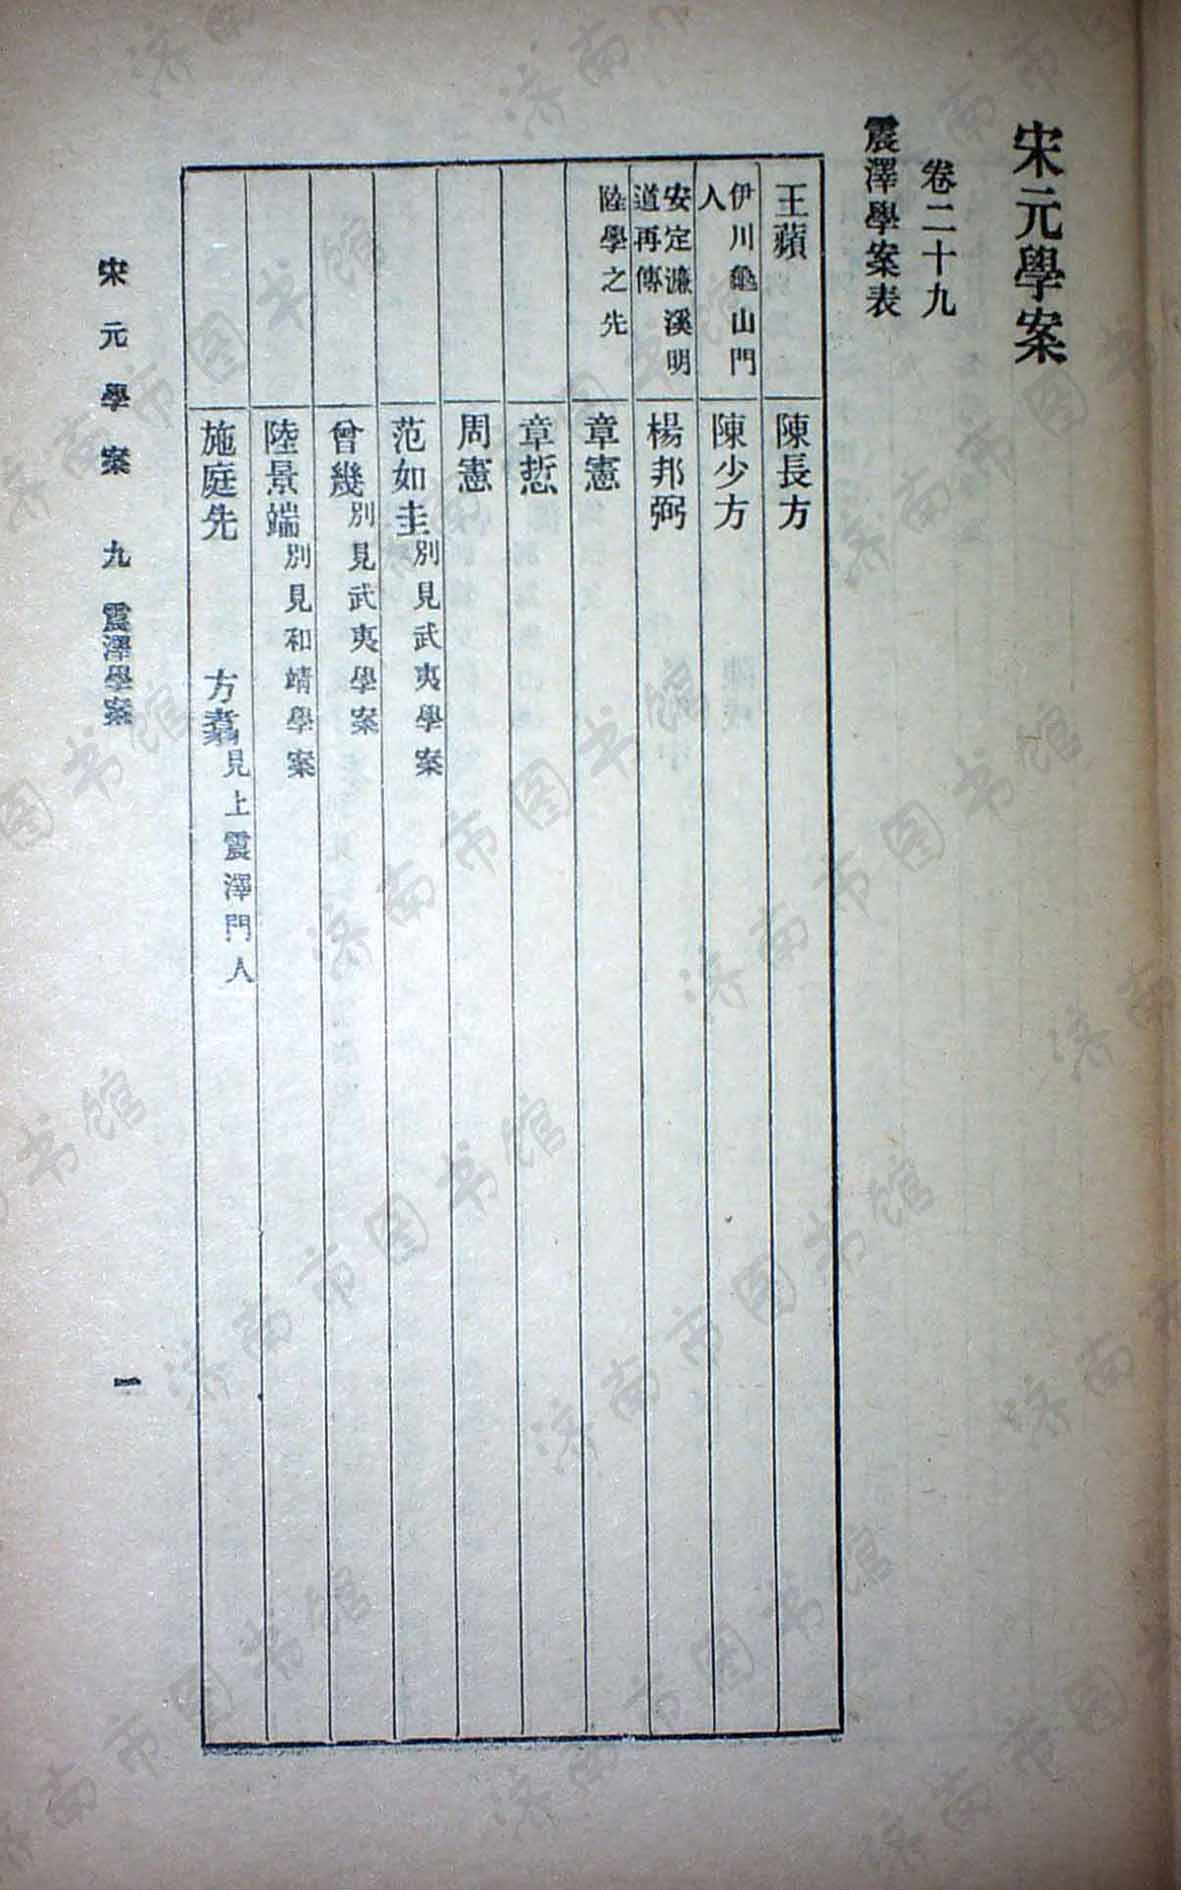 宋元學案
卷二十九
震澤學案表
王蘋
伊川龜山門
人
安定濂溪明
道再傳
陸學之先
陳長方
陳少方
楊邦弼
章憲
章悊
周憲
范如圭 別見武夷學案
曾幾 別見武夷學案
陸景端 別見和靖學案
施庭先
方翥 見上震澤門人
宋元學案 九 震澤學案
一
济南市图书馆